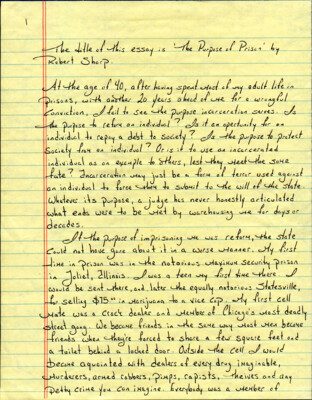 1
The title of this essay is "The Purpose of Prison" by
Robert Sharp.
At the age of 40, after having spent most of my adult life in
prisons, with another 20 years ahead of me for a wrongful
conviction, I fail to see the purpose incarceration serves. Is
the purpose to reform an individual? Is it an opertunity for an
individual to repay a debt to society? Is the purpose to protect
society from an individual? Or is it to use an incarcerated
individual as an example to others, lest they meet the same
fate? Incarceration may just be a form of terror used against
an individual to force them to submit to the will of the state.
Whatever its purpose, a judge has never honestly articulated
what ends were to be met by warehousing me for days or
decades.
If the purpose of imprisoning me was reform, the state
could not have gone about it in a worse manner. My first
time in prison was in the notorious maximum security prison
in Joliet, Illinois. I was a teen my first time there. I
would be sent there, and later the equally notorious Statesville,
for selling $15.00 in marijuana to a vice cop. My first cell
mate was a crack dealer and member of Chicago's most deadly
street gang. We became friends in the same way most men become
friends when they're forced to share a few square feet and
a toilet behind a locked door. Outside the cell I would
become aquainted with dealers of every drug imaginable,
murderers, armed robbers, pimps, rapists, theives and any
petty crime you can imagine. Everybody was a member of